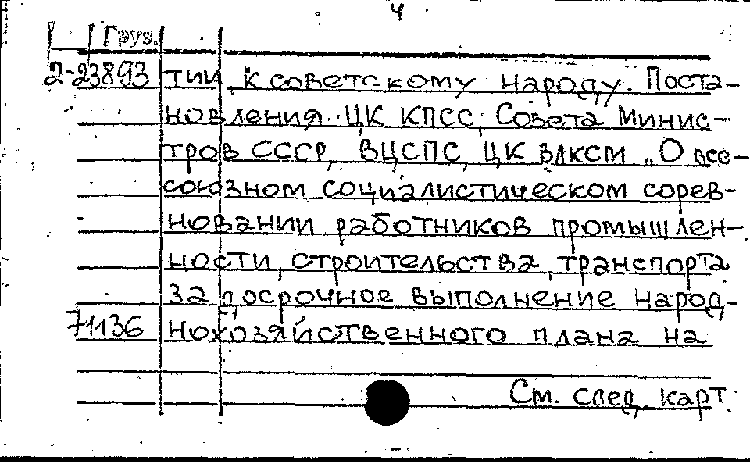 4
Груз.
2-23893 тии, к советскому народу. Поста-
новления ЦК КПСС, Совета Минис-
тров СССР, ВЦСПС, ЦК ВЛКСМ „О все-
союзном социалистическом сорев-
новании работников промышлен-
ности, строительства, транспорта
за досрочное выполнение народ-
71136 нохозяйственного плана на
См. след. карт.